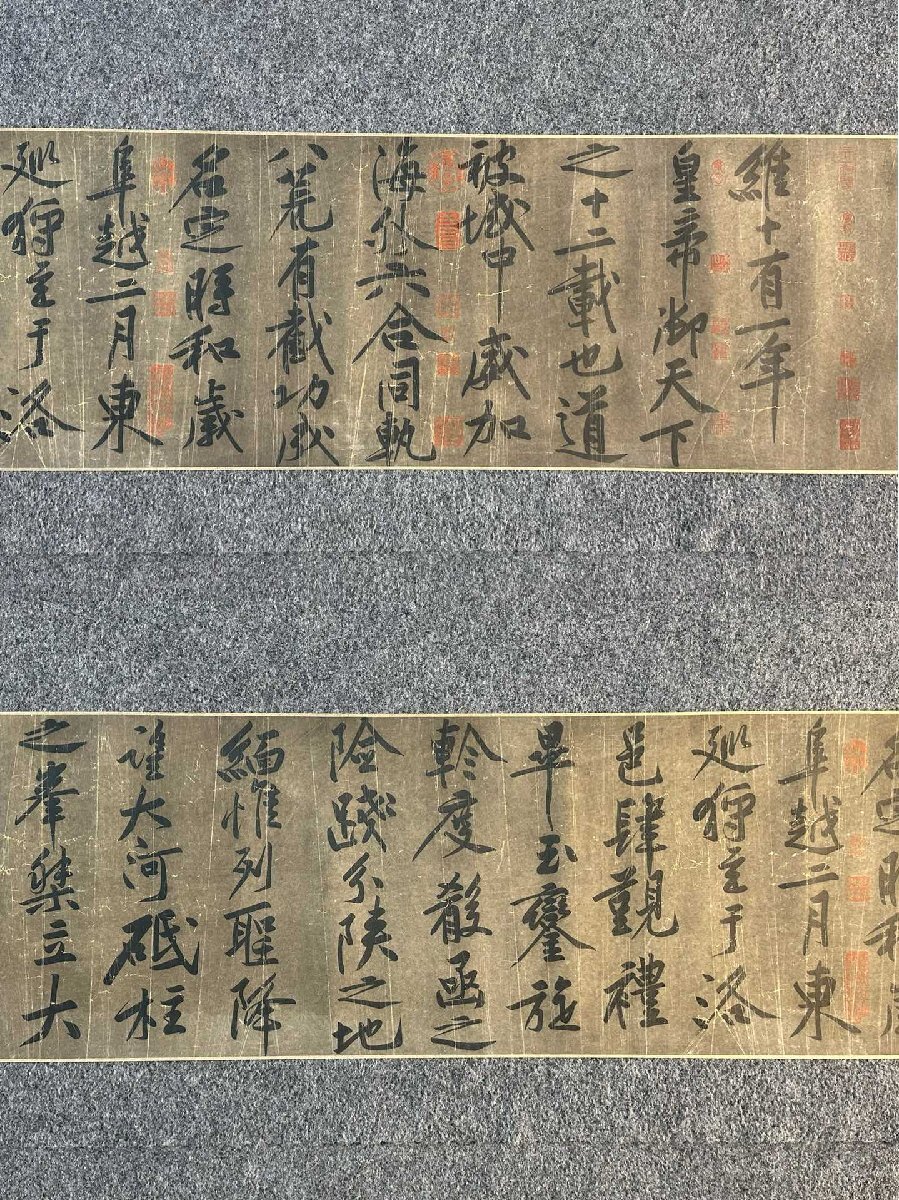 維十有一年
皇帝御天下
之十二載也道
被域中威加
海外六合同軌
八荒有截功成
名定時和歲
阜越二月東
廵狩至于洛
名定時和歲
阜越二月東
廵狩至于洛
邑肆覲禮
畢玉鑾旋
軫度殽函之
險踐分陝之地
緬惟列聖降
望大河砥柱
之峯桀立大